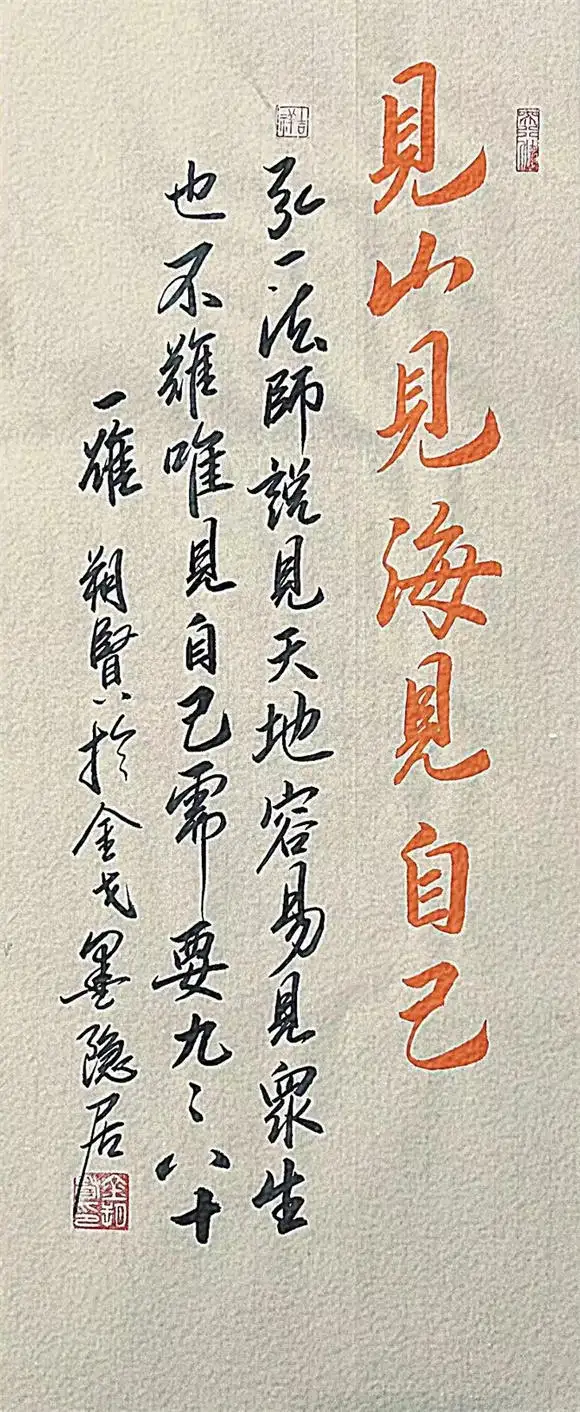 見山見海見自己
吉祥
弘一法師説見天地容易見衆生
也不難唯見自己需要九〻八十
一難 朔賢於金戈墨隐居